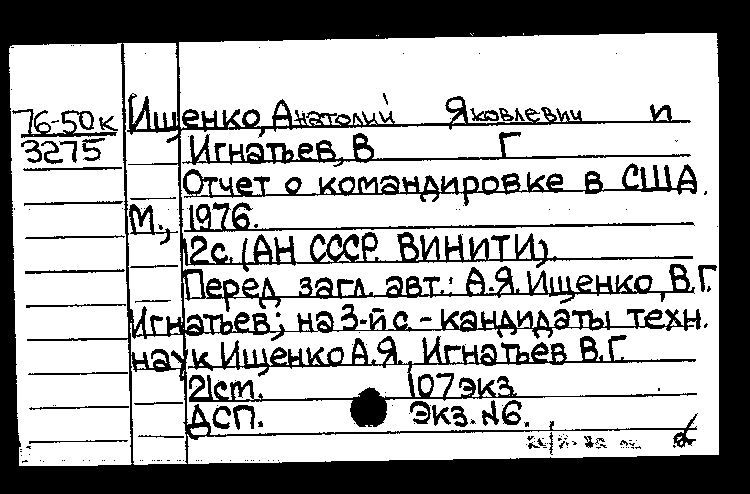 76-50к
3275
Ищенко, Анатолий Яковлевич и
Игнатьев, В Г
Отчет о командировке в США.
М., 1976.
12с. (АН СССР. ВИНИТИ).
Перед загл. авт.: А.Я. Ищенко, В.Г.
Игнатьев; на 3-й с. - кандидаты техн.
наук Ищенко А.Я., Игнатьев В.Г.
21см. 107экз.
ДСП. Экз. №6.